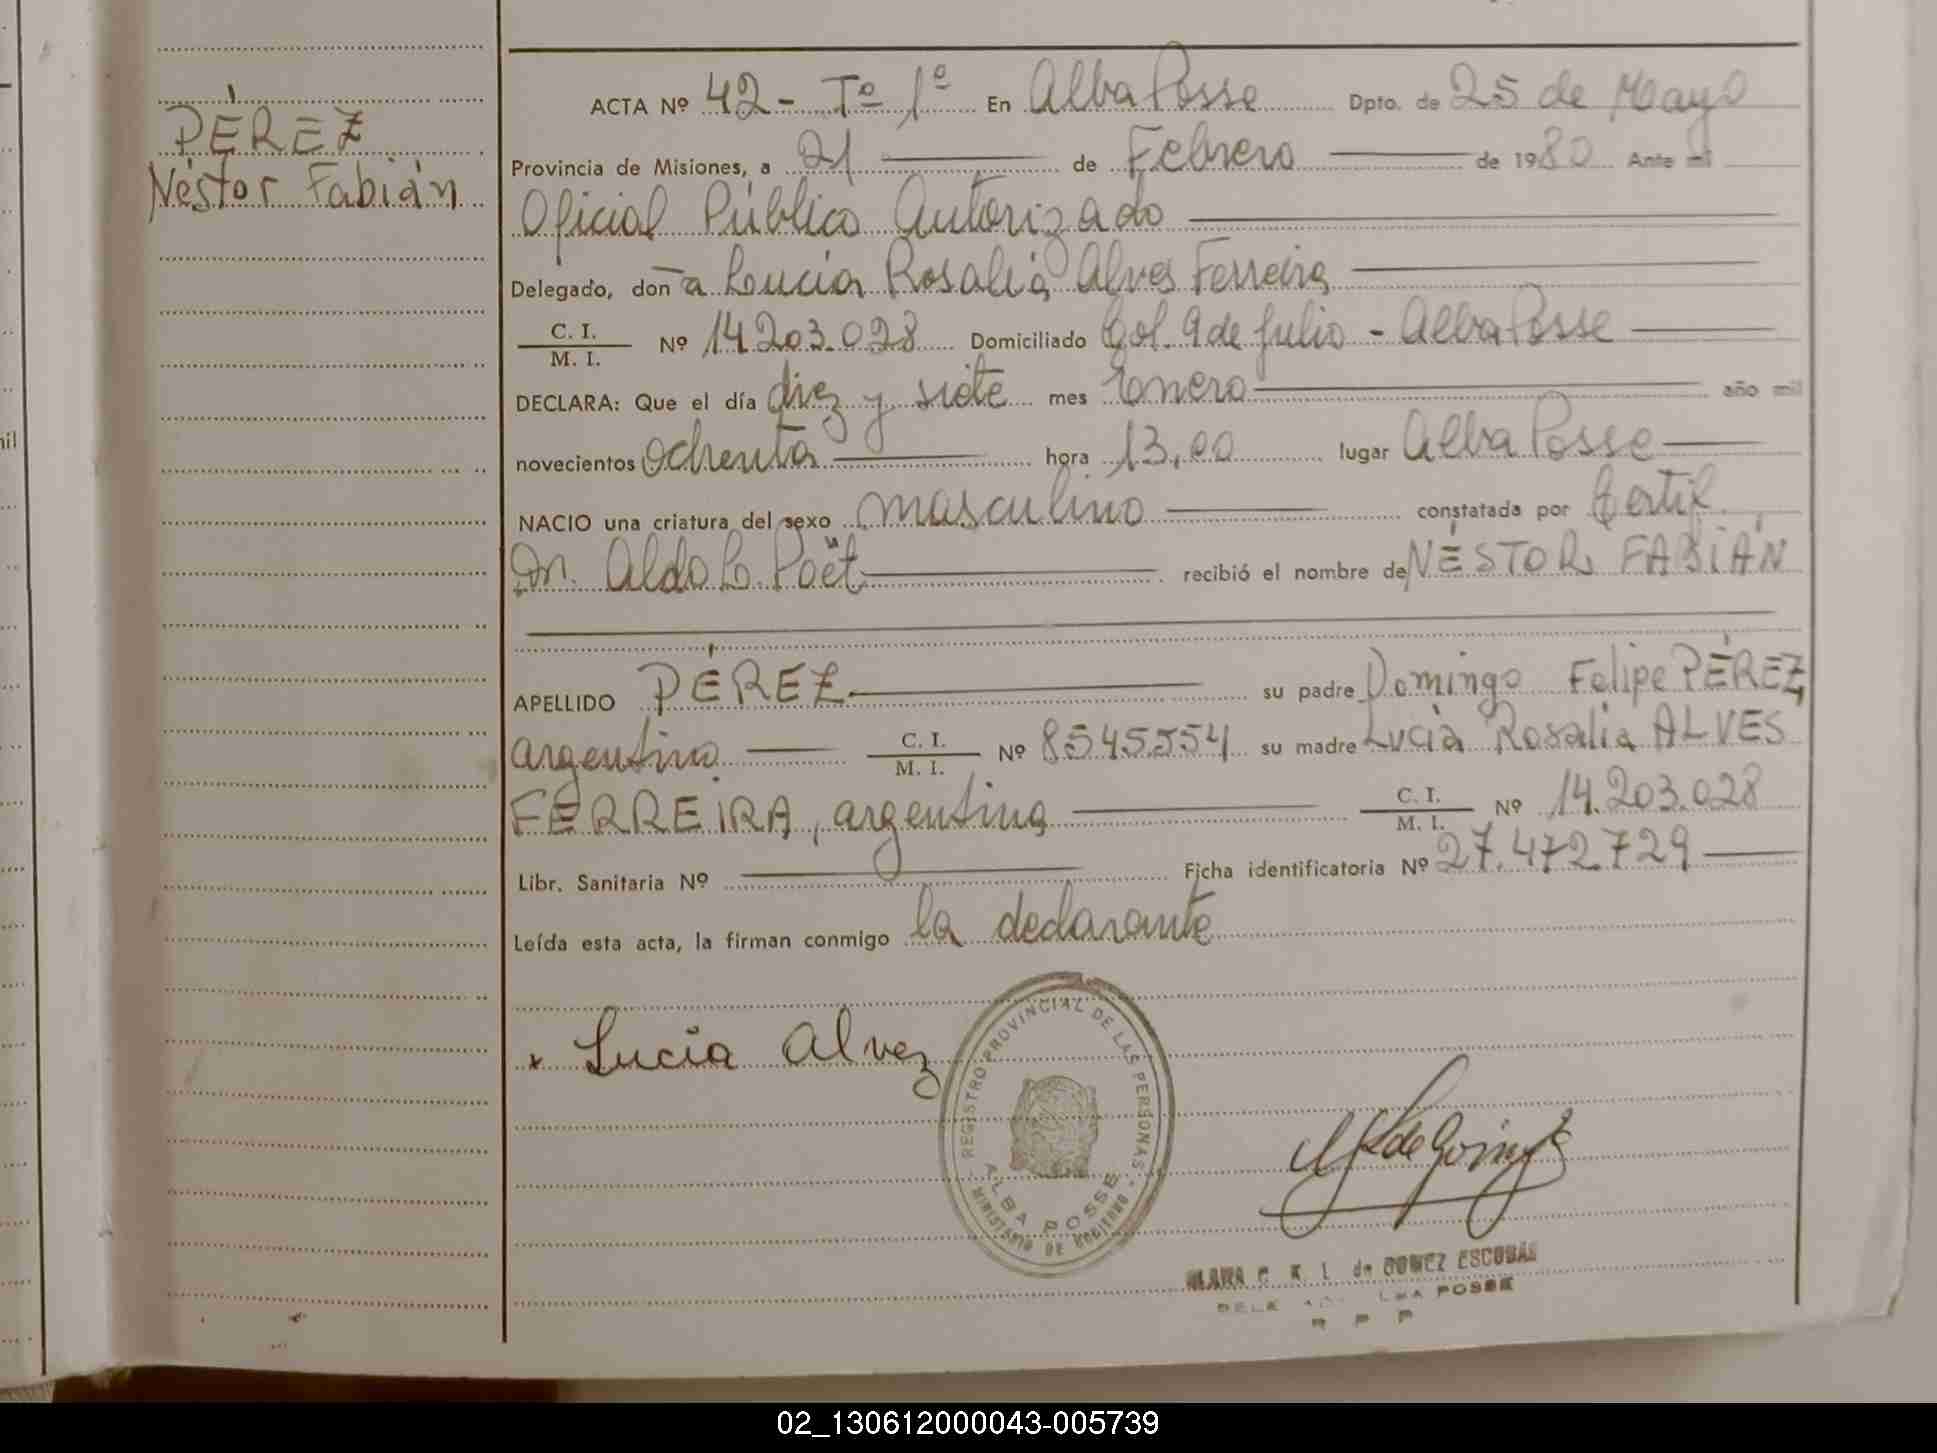 PÉREZ
Néstor Fabián
ACTA Nº 42 - Tº 1º En Alba Posse Dpto. de 25 de Mayo
Provincia de Misiones, a 21 de Febrero de 1980 Ante mí
Oficial Público Autorizado
Delegado, don a Lucia Rosalia Alves Ferreira
C. I.
M. I. Nº 14.203.028 Domiciliado Col. 9 de Julio - Alba Posse
DECLARA: Que el día diez y siete mes Enero año mil
novecientos ochenta hora 13,00 lugar Alba Posse
NACIO una criatura del sexo masculino constatada por Certif.
Dr. Aldo C. Poët recibió el nombre de NÉSTOR FABIÁN
APELLIDO PÉREZ su padre Domingo Felipe PÉREZ,
argentino C. I. M. I. Nº 8545554 su madre Lucía Rosalia ALVES
FERREIRA, argentina C. I. M. I. Nº 14.203.028
Libr. Sanitaria Nº Ficha identificatoria Nº 27.472.729
Leída esta acta, la firman conmigo la declarante
x Lucia Alvez
REGISTRO PROVINCIAL DE LAS PERSONAS
ALBA POSSE
MINISTERIO DE GOBIERNO
de GOMEZ ESCOBAR
POSSE
mil
02_130612000043-005739